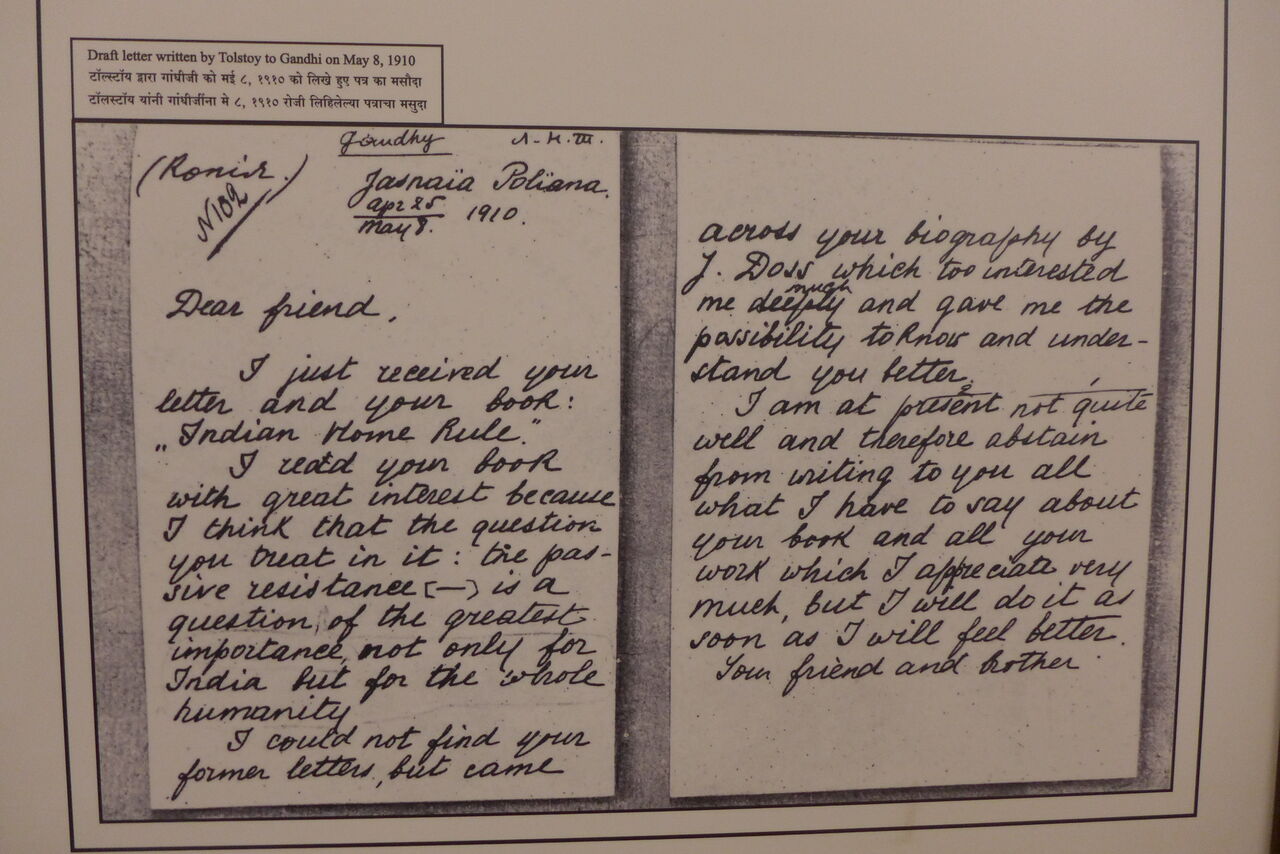 Draft letter written by Tolstoy to Gandhi on May 8, 1910
टॉल्स्टॉय द्वारा गांधीजी को मई ८, १९१० को लिखे हुए पत्र का मसौदा
टॉलस्टॉय यांनी गांधीजींना मे ८, १९१० रोजी लिहिलेल्या पत्राचा मसुदा
Gandhy
N 132
Jasnaïa Poliana.
apr 25
may 8. 1910.
Dear friend,
I just received your
letter and your book:
„Indian Home Rule."
I read your book
with great interest because
I think that the question
you treat in it: the pas-
sive resistance [—] is a
question, of the greatest
importance, not only for
India but for the whole
humanity
I could not find your
former letters, but came
across your biography by
J. Doss which too interested
much
me deeply and gave me the
possibility to know and under-
stand you better.
I am at present not quite
well and therefore abstain
from writing to you all
what I have to say about
your book and all your
work which I appreciate very
much, but I will do it as
soon as I will feel better.
Your friend and brother